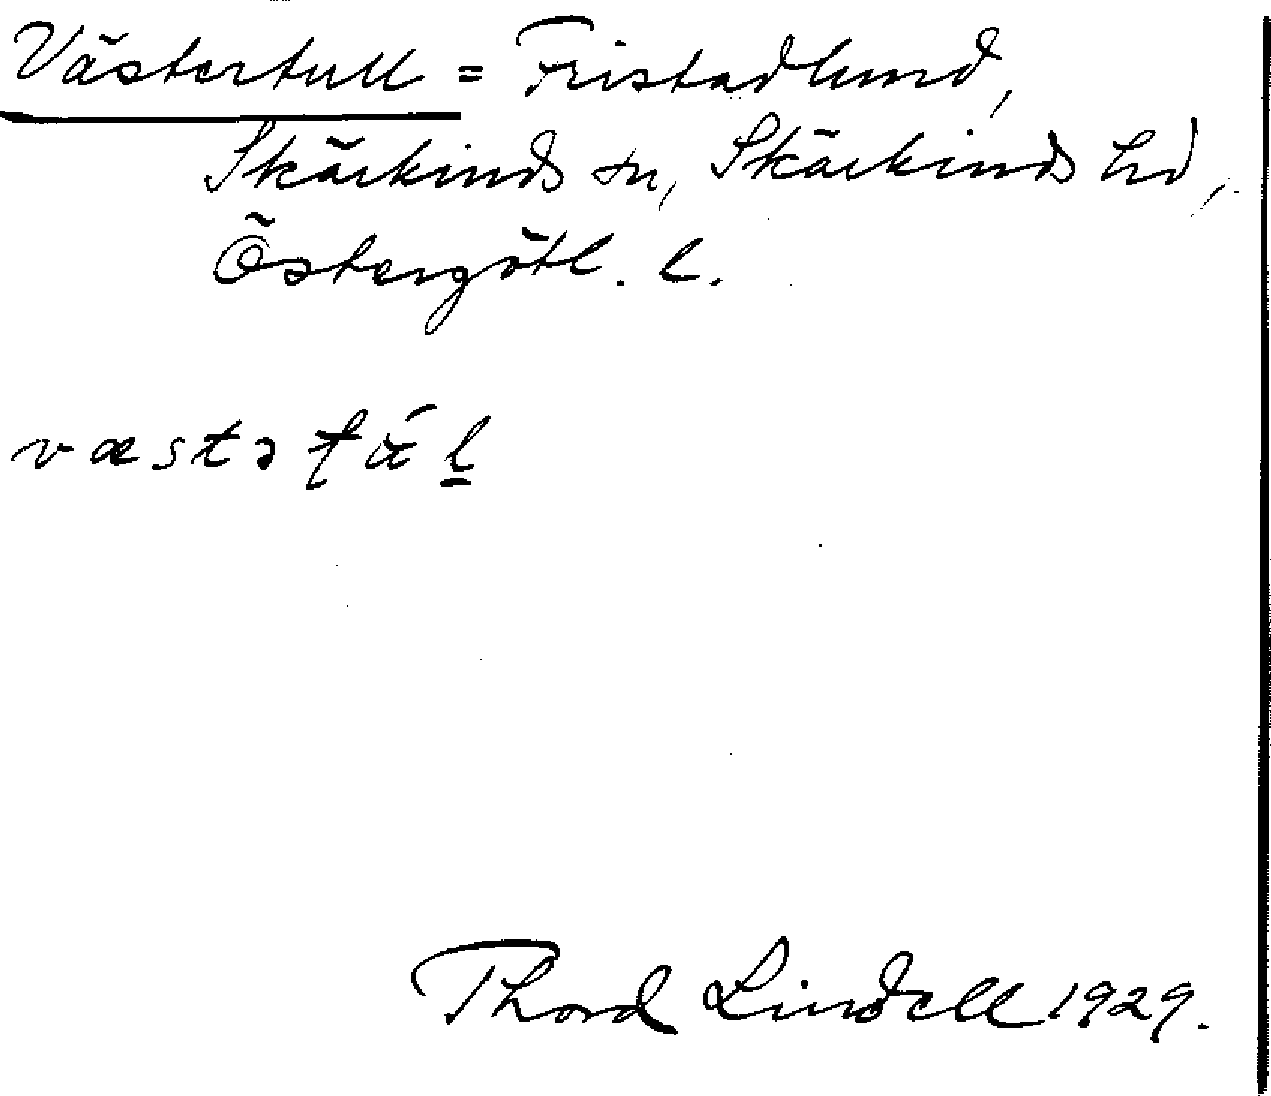 Västertull = Fristadlund,
Skärkinds sn, Skärkinds hd,
Östergötl. l.
væstə
Thord Lindell 1929.